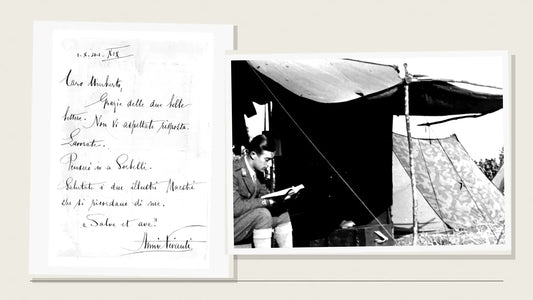 XIX
Caro Umberto,
Grazie delle due belle
lettere. Non Vi aspettate risposta.
Lavorate.
a Sorbelli.
Salutate i due illustri Maestri
che si ricordano di me.
"Salve et ave!"
Annie Vivanti